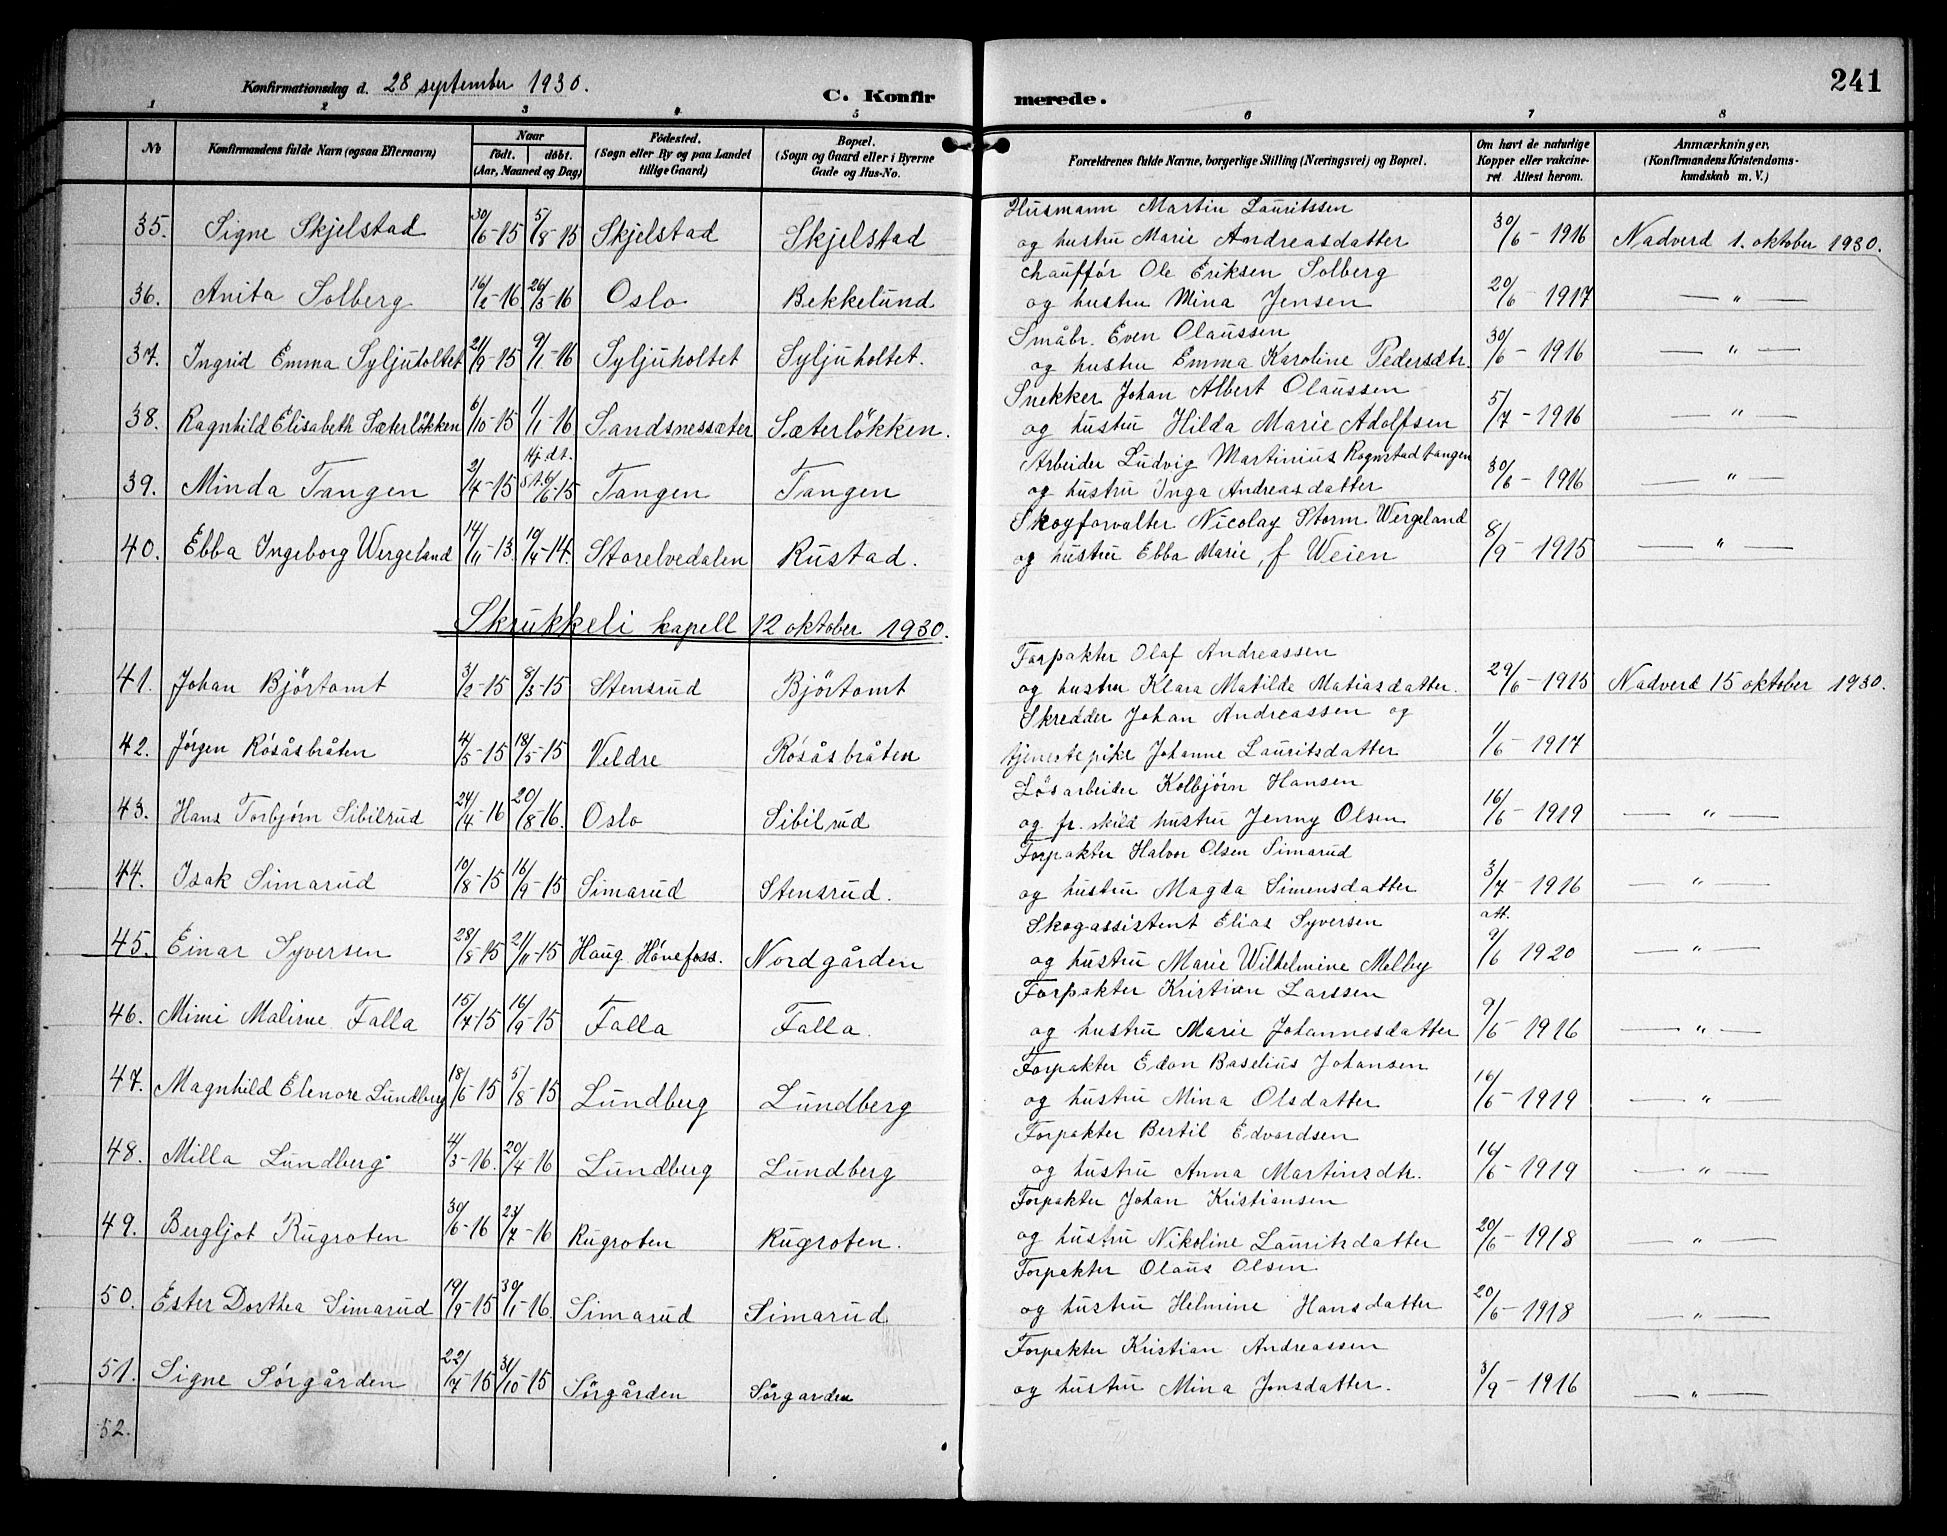 Konfirmationsdag d. 28 september 1930.
C. Konfirmerede. 241
1 2 3 4 5 6 7 8
No
Konfirmandens fulde Navn (ogsaa Efternavn)
Naar
födt. döbt.
(Aar, Maaned og Dag)
Födested.
(Sogn eller By og paa Landet
tillige Gaard)
Bopæl.
(Sogn og Gaard eller i Byerne
Gade og Hus-No.
Forældrenes fulde Navne, borgerlige Stilling (Næringsvei) og Bopæl.
Om havt de naturlige
Kopper eller vakcine-
ret Attest herom.
Anmærkninger,
(Konfirmandens Kristendoms-
kundskab m. V.)
Husmann Martin Lauritssen
35. Signe Skjelstad 30/6-15 5/8-15 Skjelstad Skjelstad og hustru Marie Andreasdatter 30/6-1916 Nadverd 1. oktober 1930.
chauffør Ole Eriksen Solberg
36. Anita Solberg 16/2-16 26/3-16 Oslo Bekkelund og hustru Mina Jensen 20/6-1917 — " —
Småbr. Even Olaussen
37. Ingrid Emma Syljuholtet 21/9-15 9/1-16 Syljuholtet Syljuholtet. og hustru Emma Karoline Pedersdtr. 30/6-1916 — " —
Snekker Johan Albert Olaussen
38. Ragnhild Elisabeth Sæterløkken 6/10-15 1/1-16 Sandsnessæter Sæterløkken. og hustru Hilda Marie Adolfsen 5/7-1916 — " —
Hj.dt. Arbeider Ludvig Martinius Rognstadtangen
39. Minda Tangen 2/4-15 st. 6/6-15 Tangen Tangen og hustru Inga Andreasdatter 30/6-1916 — " —
Skogforvalter Nicolay Storm Wergeland
40. Ebba Ingeborg Wergeland 14/11-13. 19/4-14. Storelvedalen Rustad. og hustru Ebba Marie, f Weien 8/9-1915 — " —
Skrukkeli kapell 12 oktober 1930.
Forpakter Olaf Andreassen
41. Johan Bjørtomt 3/2-15 8/3-15 Stensrud Bjørtomt og hustru Klara Matilde Matiasdatter. 29/6-1915 Nadverd 15 oktober 1930.
Skredder Johan Andreassen og
42. Jørgen Røsåsbråten 4/5-15 18/5-15 Veldre Røsåsbråten tjenestepike Johanne Lauritsdatter 1/6-1917
Løsarbeider Kolbjørn Hansen
43. Hans Torbjørn Sibilrud 24/4-16 20/8-16. Oslo Sibilrud og fr. skild hustru Jenny Olsen 16/6-1919 — " —
Forpakter Halvor Olsen Simarud
44. Isak Simarud 10/8-15 16/9-15 Simarud Stensrud. og hustru Magda Simensdatter 3/7-1916 — " —
Skogassistent Elias Syversen att.
45. Einar Syversen 28/8-15 21/11-15 Haug. Hønefoss. Nordgården og hustru Marie Wilhelmine Melby 9/6 1920 — " —
Forpakter Kristian Larssen
46. Mimi Malirne Falla 15/7-15 16/9-15 Falla Falla. og hustru Marie Johannesdatter 9/6-1916 — " —
Forpakter Edon Baselius Johansen
47. Magnhild Elenore Lundberg 18/6-15 5/8-15 Lundberg Lundberg og hustru Mina Olsdatter 16/6-1919 — " —
Forpakter Bertil Edvardsen
48. Milla Lundberg 4/3-16. 20/4-16 Lundberg Lundberg og hustru Anna Martinsdtr. 16/6-1919 — " —
Forpakter Johan Kristiansen
49. Bergljot Rugroten 30/6-16 23/7-16 Rugroten Rugroten. og hustru Nikoline Lauritsdatter 20/6-1918 — " —
Forpakter Olaus Olsen
50. Ester Dorthea Simarud 19/9-15 30/1-16. Simarud Simarud og hustru Helmine Hansdatter 20/6-1918 — " —
Forpakter Kristian Andreassen
51. Signe Sørgården 22/7-15 31/10-15 Sørgården Sørgarden og hustru Mina Jonsdatter. 3/9-1916 — " —
52.